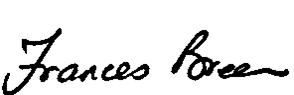 Frances Breen